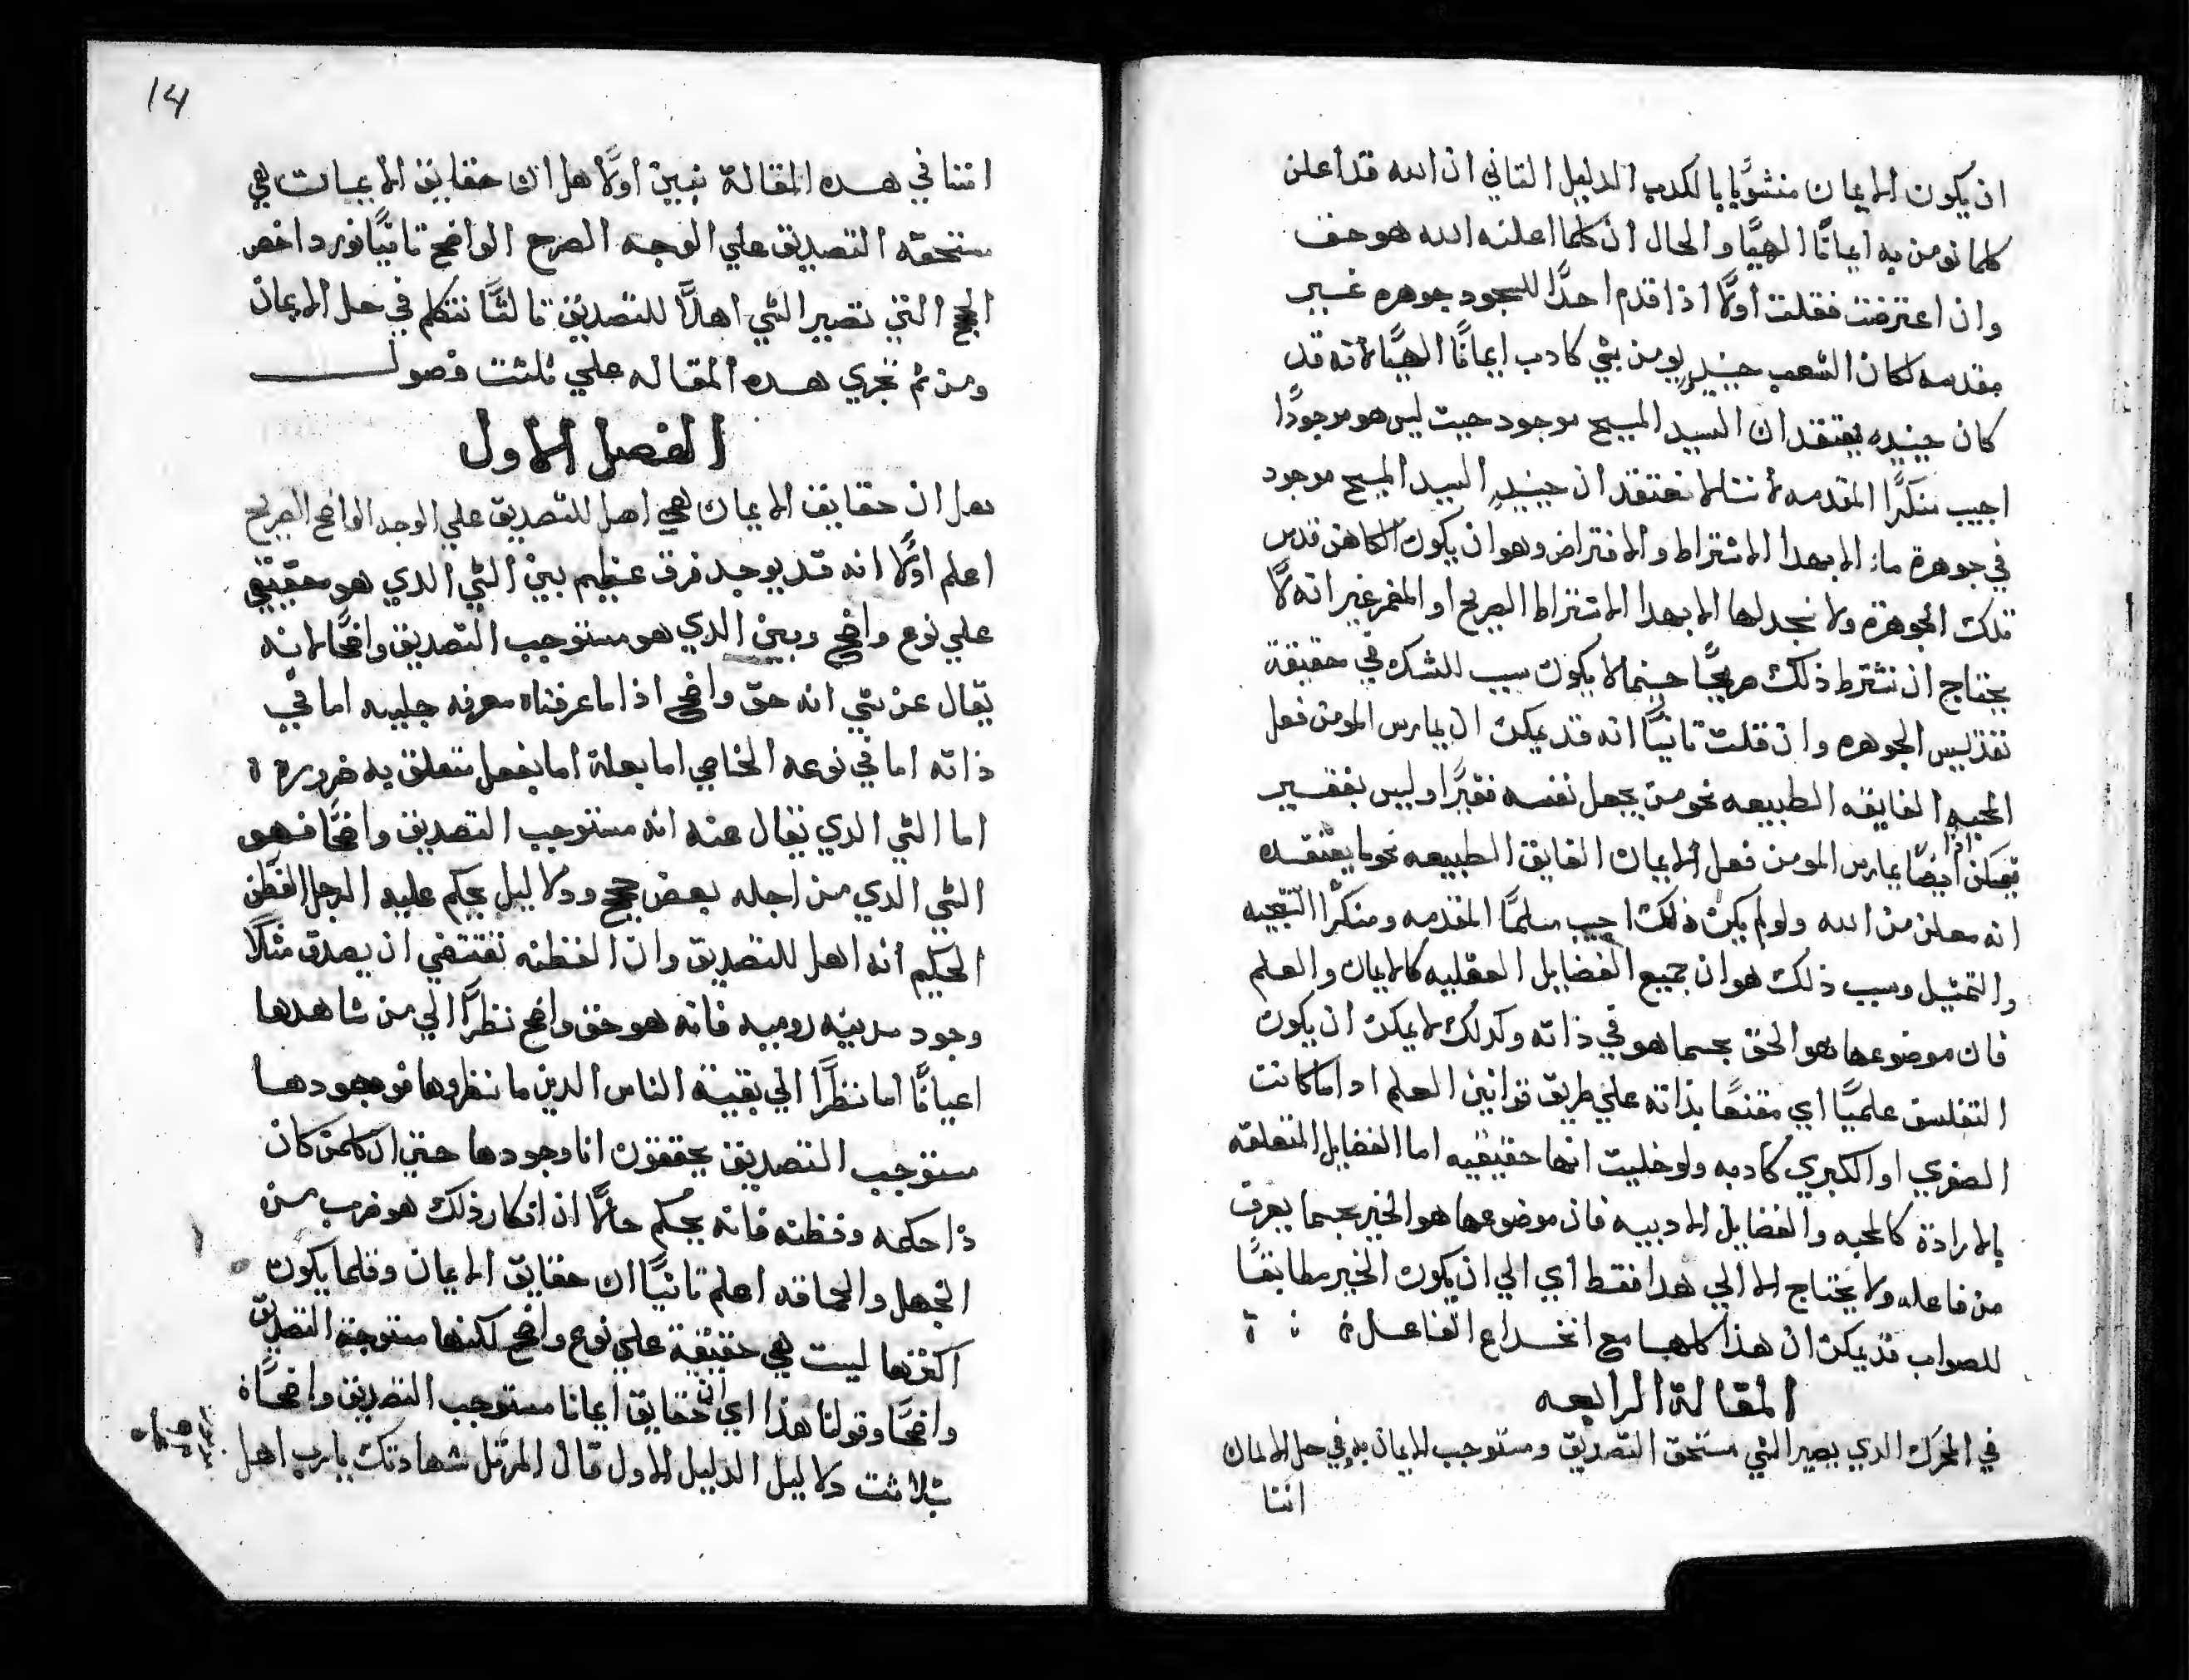 ان يكون الايمان منشوًّبا بالكدب الدليل التاني ان الله قد اعلن
كلما نومن به ايمانًا الهيًّا والحال ان كلما اعلنه الله هو حق
وان اعترضت فقلت اولًا اذا قدم احدًا للسجود جوهره غير
مقدسه لكان الشعب حينيدٍ يومن بشي كادب ايمانًا الهيًّا لانه قد
كان حينيده يعتقد ان السيد المسيح موجود حيت ليس هو موجودًا
اجيب منكرًا المقدمه لاننا لا نعتقد ان حينيدٍ السيد المسيح موجود
في جوهرة ما الا بهدا الاشتراط والافتراض وهو ان يكون الكاهن قدس
تلك الجوهرة ولا نسجد لها الا بهدا الاشتراط الصريح او المضمر غير انه لا
يحتاج ان نشترط ذلك صريحًا حينما لا يكون سبب للشك في حقيقة
تقديس الجوهره وان قلت تانيًا انه قد يمكن ان يمارس المومن فعل
المحبه الفايقه الطبيعه نحو من يجعل نفسه فقيرًا وليس بفقير
فيمكن اذًا ايضًا يمارس المومن فعل الايمان الفايق الطبيعه نحو ما يعتقده
انه معلن من الله ولو لم يكن ذلك اجيب مسلمًا المقدمه ومنكرًا النتيجه
والتمثيل وسبب ذلك هو ان جميع الفضايل العقليه كالايمان والعلم
فان موضوعها هو الحق بحسما هو في ذاته وكدلك لا يمكن ان يكون
التفلسف علميًّا اي مقنعًا بذاته علي طريق قوانين العلم اداما كانت
الصغري او الكبري كادبه ولو خليت انها حقيقيه اما الفضايل المتعلقه
بالارادة كالمحبه والفضايل الادبيه فان موضوعها هو الخير بحسما يعرف
من فاعله ولا يحتاج الا الي هدا فقط اي الي ان يكون الخير مطابقًا
للصواب قد يمكن ان هذا كلها مع انخداع الفاعل ة ة
المقالة الرابعه
في المحرك الدي يصير الشي مستحق التصديق ومستوجب الايمان به وفي حل الايمان
اننا
14
اننا في هده المقالة نبين اولًا هل ان حقايق الايمان هي
مستحقه التصديق علي الوجه الصرح الواضح تانيًّا نورد اخص
الحجج التي تصير الشي اهلًا للتصديق تالتًّا نتكلم في حل الايمان
ومن ثم تجري هده المقاله علي ثلثت فصول
الفصل الاول
هل ان حقايق الايمان هي اهل للتصديق علي الوجه الواضح الصريح
اعلم اولًا انه قد يوجد فرق عظيم بين الشي الدي هو حقيقي
علي نوع واضح وبين الدي هو مستوجب التصديق واضحًا لانه
يقال عن شي انه حق واضح اذا ما عرفناه معرفه جليه اما في
ذاته اما في نوعه الخاصي اما بعلة اما بفعل متعلق به ضروره ة
اما الشي الدي يقال عنه انه مستوجب التصديق واضحًا فهو
الشي الدي من اجله بعض حجج ودلاليل يحكم عليه الرجل الفطن
الحكيم انه اهل للتصديق وان الفطنه تقتضي ان يصدق مثلًا
وجود مدينه روميه فانه هو حق واضح نظرًا الي من شاهدها
اعيانًا اما نظرًا الي بقية الناس الدين ما نظروها فوجودها
مستوجب التصديق يحققون انا وجودها حتي ان كلمن كان
ذا حكمه وفطنه فانه يحكم حالًا ان انكار ذلك هو ضرب من
الجهل والحماقه اعلم تانيًّا ان حقايق الايمان وقلما يكون
اكثرها ليست هي حقيقية علي نوع واضح لكنها مستوجبة التصديق
واضحًا وقولنا هذا اي ان حقايق ايماننا مستوجب التصديق واضحًا ة
بثلاثت دلاليل الدليل الاول قال المرتل شهادتك يا رب اهل